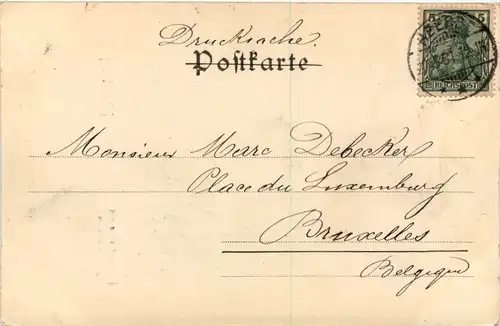 Drucksache.
Postkarte
5 5
REICHSPOST
Monsieur Marc Debecker
Place du Luxemburg
Bruxelles
Belgique